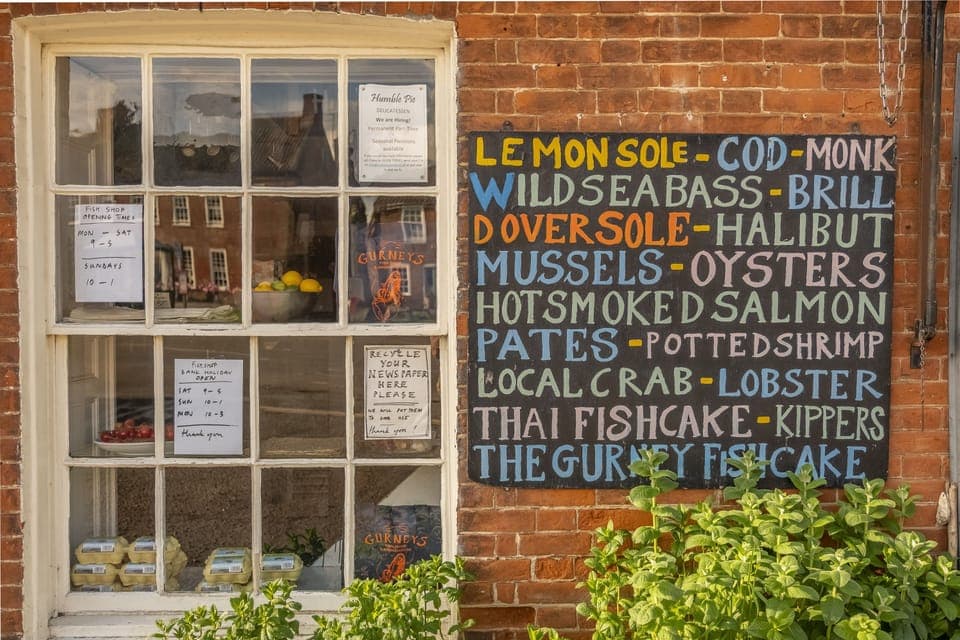 Humble Pie
DELICATESSEN
We are Hiring!
Permanent Part Time
Seasonal Positions
available
FISH SHOP
OPENING TIMES
MON - SAT
9 - 5
SUNDAYS
10 - 1
GURNEYS
FISHSHOP
BANK HOLIDAY
OPEN
SAT 9 - 5
SUN 10 - 1
MON 10 - 3
thank you
RECYCLE
YOUR
NEWSPAPER
HERE
PLEASE
WE WILL PUT THEM
TO GOOD USE
thank you!
GURNEYS
LEMON SOLE - COD - MONK
WILD SEABASS - BRILL
DOVER SOLE - HALIBUT
MUSSELS - OYSTERS
HOT SMOKED SALMON
PATES - POTTED SHRIMP
LOCAL CRAB - LOBSTER
THAI FISHCAKE - KIPPERS
THE GURNEY FISHCAKE